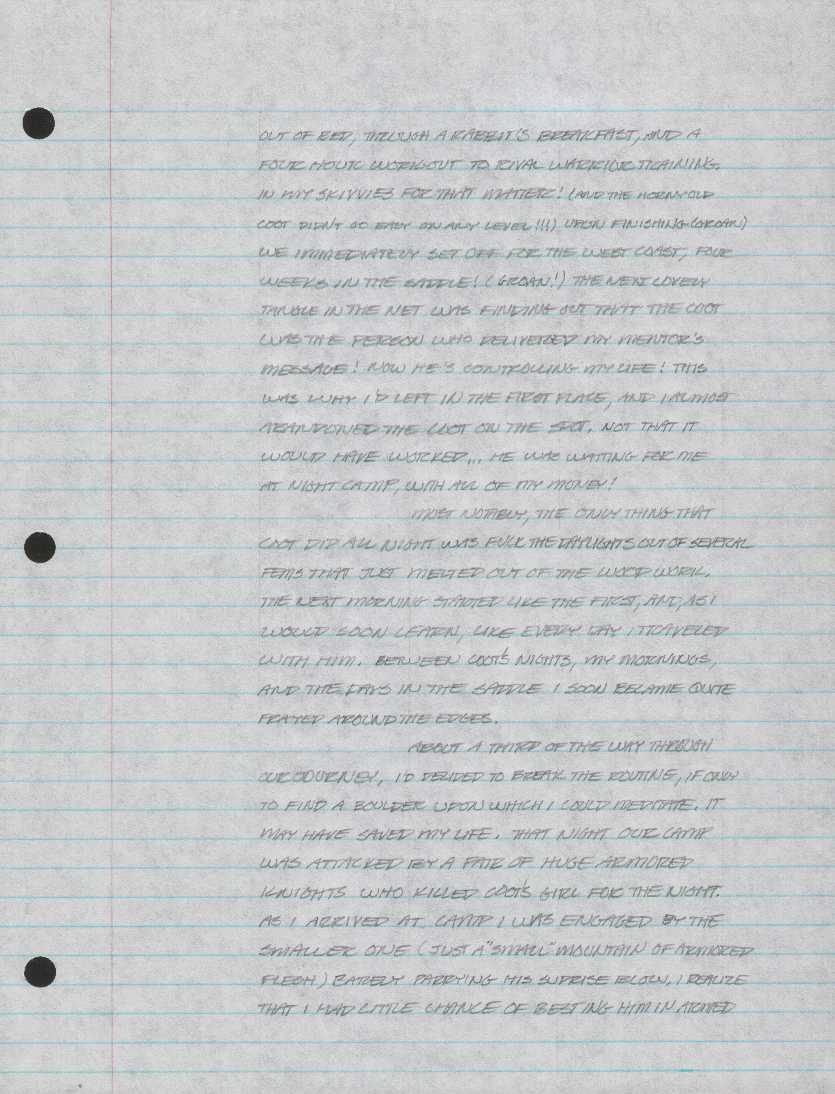 OUT OF BED, THROUGH A RABBIT'S BREAKFAST, AND A
FOUR HOUR WORKOUT TO RIVAL WARRIOR TRAINING.
IN MY SKIVVIES FOR THAT MATTER! (AND THE HORNY OLD
COOT DIDN'T GO EASY ON ANY LEVEL!!!) UPON FINISHING (GROAN)
WE IMMEDIATELY SET OFF FOR THE WEST COAST, FOUR
WEEKS IN THE SADDLE! (GROAN!) THE NEXT LOVELY
TANGLE IN THE NET WAS FINDING OUT THAT THE COOT
WAS THE PERSON WHO DELIVERED MY MENTOR'S
MESSAGE! NOW HE'S CONTROLLING MY LIFE! THIS
WAS WHY I'D LEFT IN THE FIRST PLACE, AND I ALMOST
ABANDONED THE COOT ON THE SPOT. NOT THAT IT
WOULD HAVE WORKED... HE WAS WAITING FOR ME
AT NIGHT CAMP, WITH ALL OF MY MONEY!
MOST NOTABLY, THE ONLY THING THAT
COOT DID ALL NIGHT WAS FUCK THE DAYLIGHTS OUT OF SEVERAL
FEMS THAT JUST MELTED OUT OF THE WOOD WORK.
THE NEXT MORNING STARTED LIKE THE FIRST, AND, AS I
WOULD SOON LEARN, LIKE EVERY DAY I TRAVELED
WITH HIM. BETWEEN COOT'S NIGHTS, MY MORNINGS,
AND THE DAYS IN THE SADDLE I SOON BECAME QUITE
FRAYED AROUND THE EDGES.
ABOUT A THIRD OF THE WAY THROUGH
OUR JOURNEY, I'D DECIDED TO BREAK THE ROUTINE, IF ONLY
TO FIND A BOULDER UPON WHICH I COULD MEDITATE. IT
MAY HAVE SAVED MY LIFE. THAT NIGHT OUR CAMP
WAS ATTACKED BY A PAIR OF HUGE ARMORED
KNIGHTS WHO KILLED COOT'S GIRL FOR THE NIGHT.
AS I ARRIVED AT CAMP I WAS ENGAGED BY THE
SMALLER ONE (JUST A "SMALL" MOUNTAIN OF ARMORED
FLESH) BARELY PARRYING HIS SUPRISE BLOW, I REALIZE
THAT I HAD LITTLE CHANCE OF BESTING HIM IN ARMED